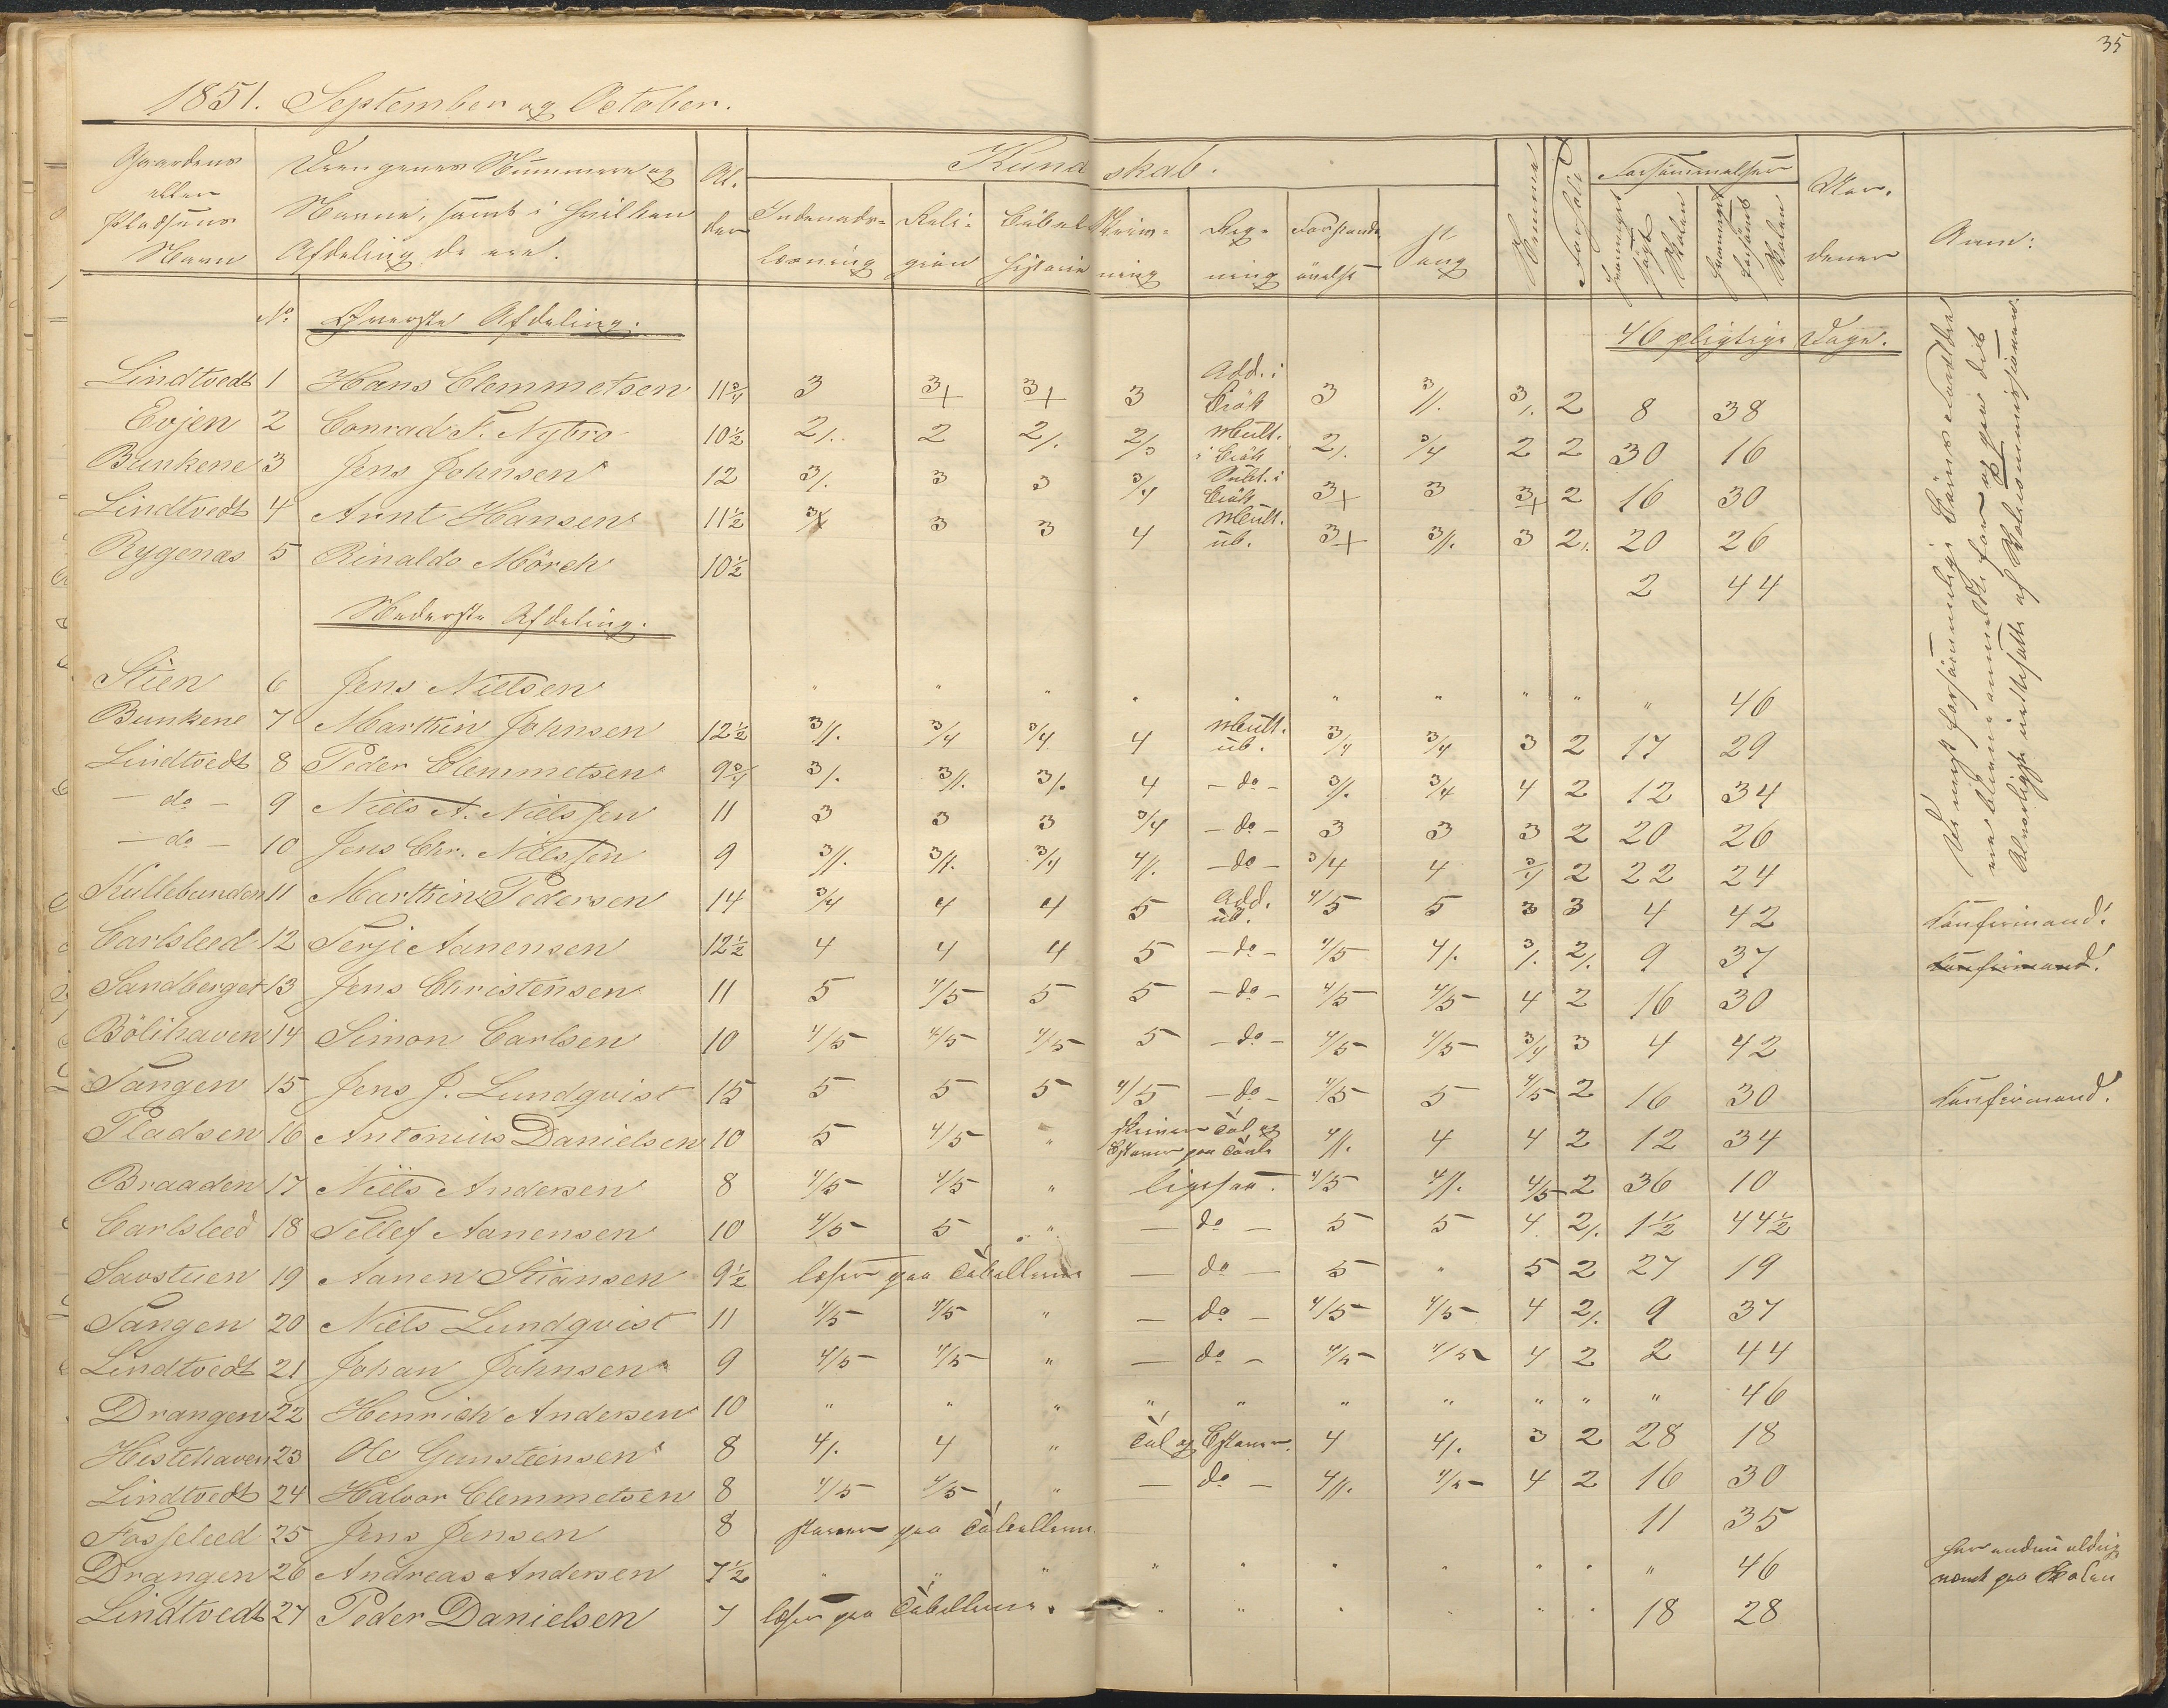 35
1851. September og October.
Gaardens eller Pladsens Navn | Drengenes Nummere og Navne, samt i hvilken Afdeling de ere. | Al- der | Kundskab. | Evne | Forhold | Forsømmelser | Ver- dener | Anm:
Indenads- læsning | Reli- gion | Bibel historie | Skriv- ning | Reg- ning | Forstands- øvelse | Sang | fremmget søgt Skolen | forsømt Skolen
No. Øverste Afdeling. 46 pligtige Dage.
Lindtvedt 1 Hans Clemmetsen 11¾ 3 3+ 3+ 3 Add. i Brök 3 3//. 3/. 2 8 38
Evjen 2 Conrad F. Nybro 10½ 2/. 2 2/. 2/3 Mult. i Brök 2/. 3/4 2 2 30 16
Bunkene 3 Jens Johnsen 12 3/. 3 3 3/4 Subt. i Brök 3+ 3 3+ 2 16 30
Lindtvedt 4 Arnt Hansen 11½ 3/. 3 3 4 Mult. ub. 3+ 3//. 3 2/. 20 26
Rygenæs 5 Rinaldo Mörch 10½ 2 44
Nederste Afdeling.
Stien 6 Jens Nielsen " " " " " " " " " " 46
Bunkene 7 Marthin Johnsen 12½ 3//. 3/4 3/4 4 Mult. ub. 3/4 3/4 3 2 17 29
Lindtvedt 8 Peder Clemmetsen 9¾ 3/. 3//. 3/. 4 – do – 3//. 3/4 4 2 12 34
– do – 9 Niels A. Nielssen 11 3 3 3 3/4 – do – 3 3 3 2 20 26
– do – 10 Jens Chr. Nielssen 9 3//. 3//. 3/4 4//. – do – 3/4 4 3/4 2 22 24
Kullebunden 11 Marthin Pedersen 14 3/4 4 4 5 Add. ub. 4/5 5 3 3 4 42 Confirmand.
Carlsleed 12 Terje Aanensen 12½ 4 4 4 5 – do – 4/5 4/. 3/. 2/. 9 37 Confirmand.
Sandberget 13 Jens Christensen 11 5 4/5 5 5 – do – 4/5 4/5 4 2 16 30
Bölihaven 14 Simon Carlsen 10 4/5 4/5 4/5 5 – do – 4/5 4/5 3/4 3 4 42
Tangen 15 Jens J. Lundqvist 15 5 5 5 4/5 – do – 4/5 5 4/5 2 16 30 Confirmand.
Pladsen 16 Antonius Danielsen 10 5 4/5 " skriver Tal og paa Tavle 4//. 4 4 2 12 34
Braaden 17 Niels Andersen 8 4/5 4/5 " ligesaa. 4/5 4//. 4/5 2 36 10
Carlsleed 18 Tellef Aanensen 10 4/5 5 " – do – 5 5 4 2/. 1½ 44½
Savstuen 19 Aanen Stiansen 9½ læser paa Tabellerne – do – 5 " 5 2 27 19
Tangen 20 Niels Lundqvist 11 4/5 4/5 " – do – 4/5 4/5 4 2/. 9 37
Lindtvedt 21 Johan Johnsen 9 4/5 4/5 " – do – 4/5 4/5 4 2 2 44
Drangen 22 Henrich Andersen 10 " " " " " " " " " " 46
Histehaven 23 Ole Gunsteensen 8 4/. 4 " Tal og 4 4/. 3 2 28 18
Lindtvedt 24 Halvor Clemmetsen 8 4/5 4/5 " – do – 4//. 4/5 4 2 16 30
Fosseleed 25 Jens Jensen 8 staver paa Tabellerne 11 35
Drangen 26 Andreas Andersen 7½ " " " " " " " " " " 46 har endnu aldrig været paa Skolen
Lindtvedt 27 Peder Danielsen 7 læser paa Tabellerne. " " " " " " 18 28